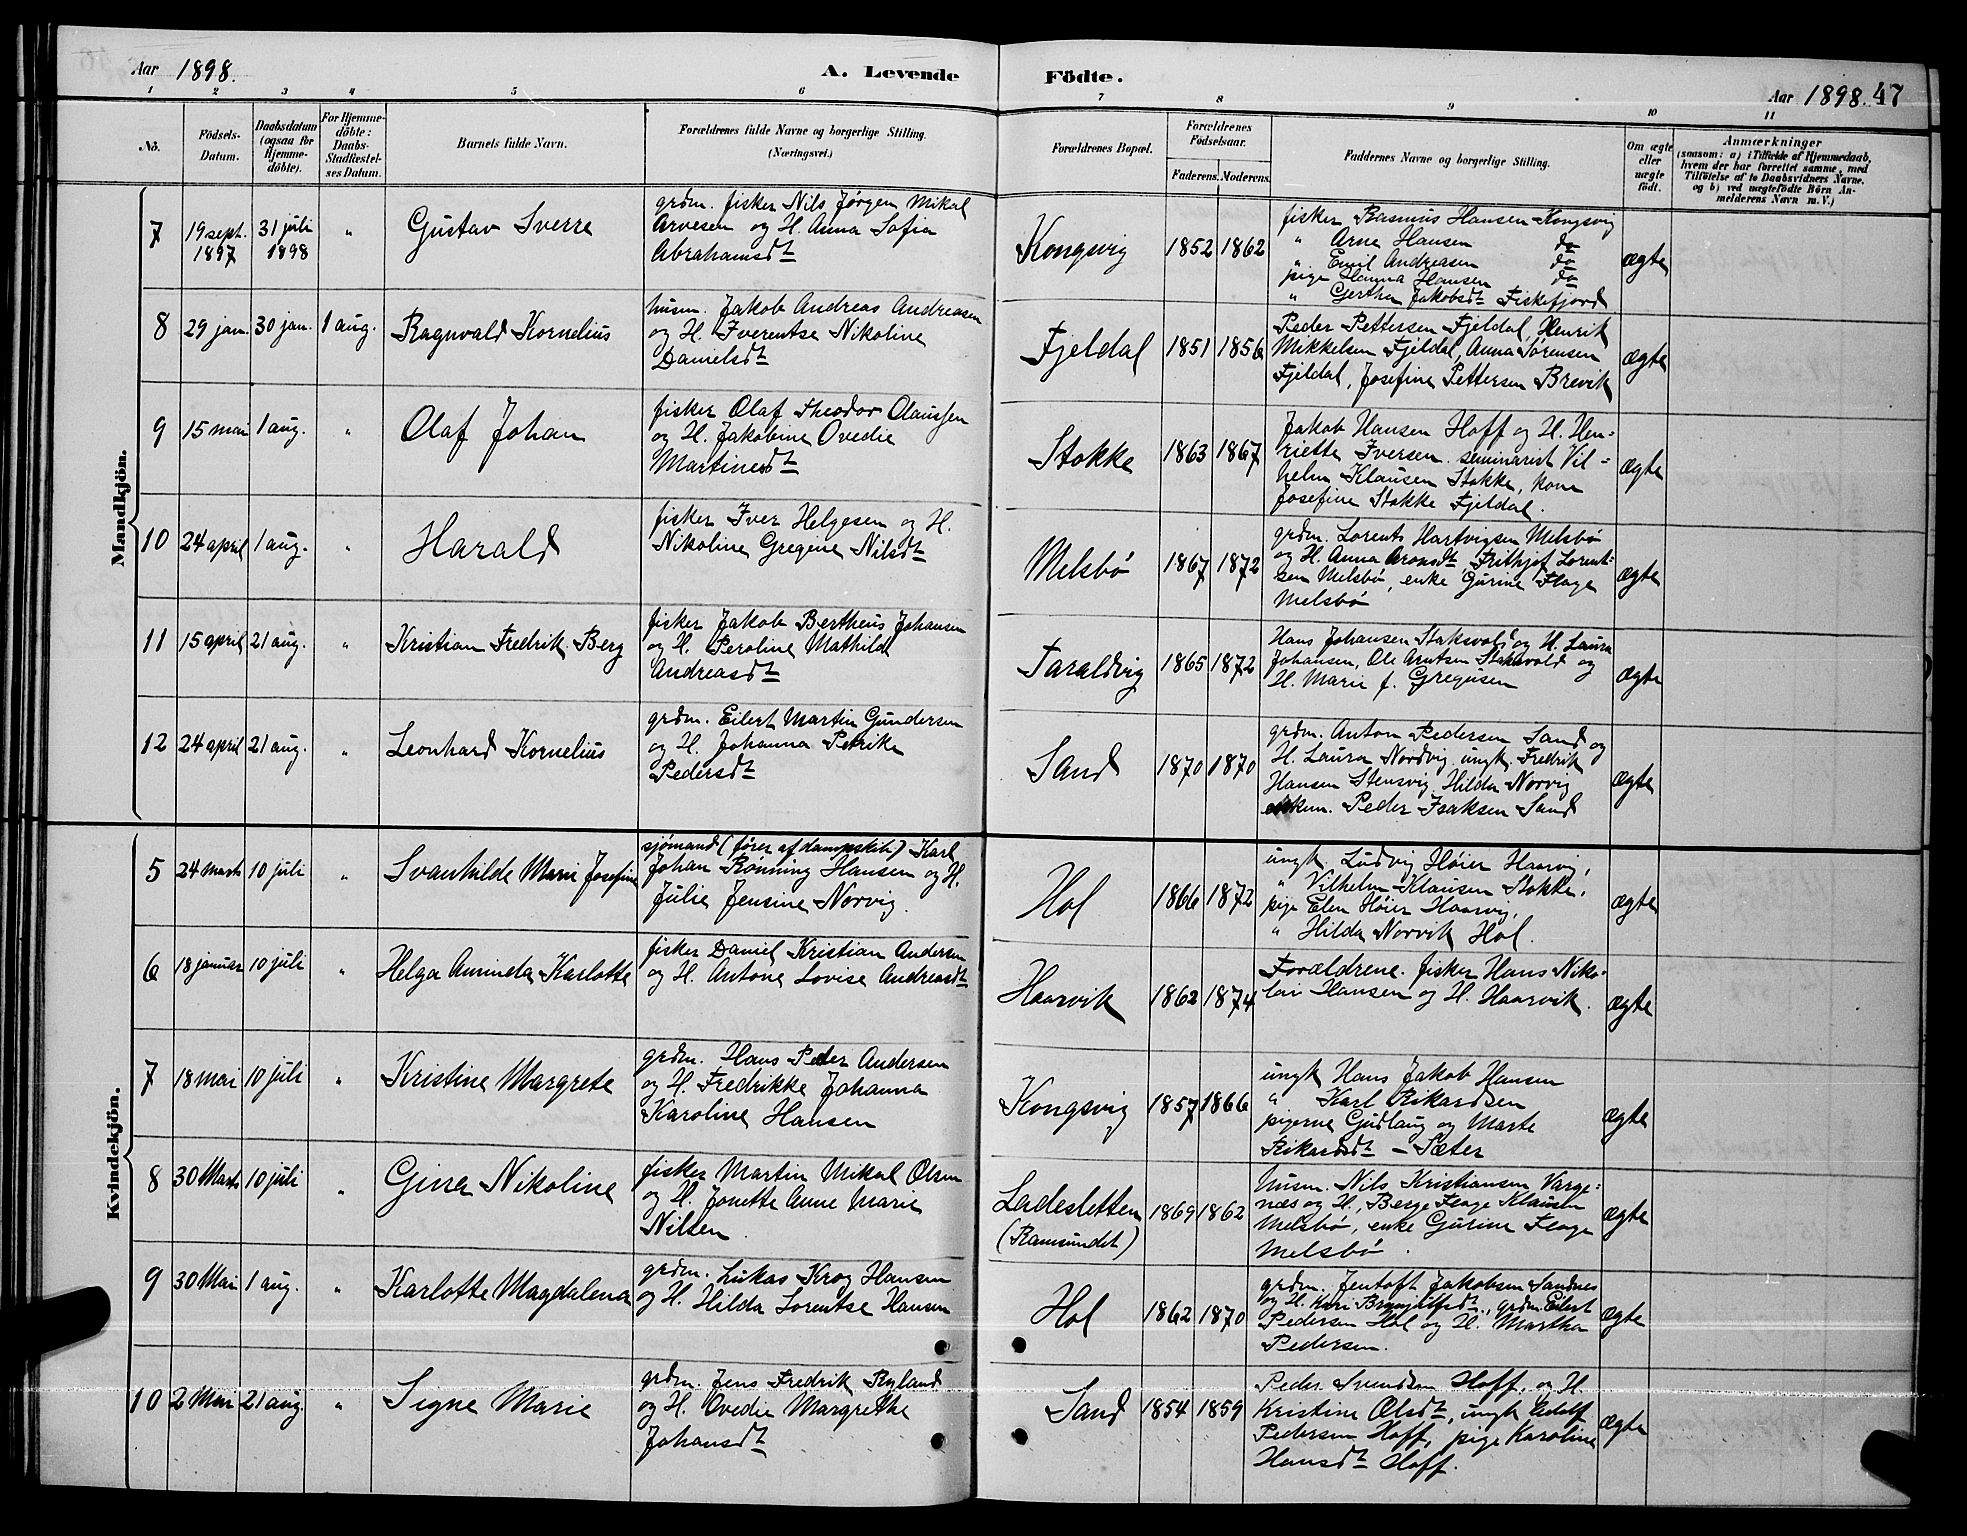 Aar 1898.
A. Levende Födte.
Aar 1898. 47
1 2 3 4 5 6 7 8 9 10 11
No.
Födsels-Datum.
Daabsdatum (ogsaa for Hjemme-döbte).
For Hjemme-döbte: Daabs-Stadfæstel-ses Datum.
Barnets fulde Navn.
Forældrenes fulde Navne og borgerlige Stilling.
(Næringsvei.)
Forældrenes Bopæl.
Forældrenes Födselsaar.
Faderens. Moderens.
Faddernes Navne og borgerlige Stilling.
Om ægte eller uægte födt.
Anmærkninger
(saasom: a) i Tilfælde af Hjemmedaab,
hvem der har forrettet samme, med
Tilföielse af to Daabsvidners Navne,
og b) ved uægtefödte Börn An-
melderens Navn m. V.)
Mandkjön.
7 19 sept. 1897 31 juli 1898 " Gustav Sverre
grdm. fisker Nils Jørgen Mikal
Arvesen og H. Anna Sofia
Abrahamsdt
Kongsvig 1852 1862
fisker Rasmus Hansen Kongsvig
" Arne Hansen do
" Emil Andreasen do
pige Hanna Hansen do
" Gertha Jakobsdt Fiskefjord
ægte
8 29 jan. 30 jan. 1 aug. Ragnvald Kornelius
husm. Jakob Andreas Andreasen
og H. Iverentse Nikoline
Danielsdt
Fjeldal 1851 1856
Peder Pettersen Fjeldal, Henrik
Mikkelsen Fjeldal, Anna Sørensen
Fjeldal, Josefine Pettersen Brevik
ægte
9 15 mai 1 aug. " Olaf Johan
fisker Olaf Theodor Olaussen
og H. Jakobine Ovedie
Martinesdt
Stokke 1863 1867
Jakob Hansen Hoff og H. Hen-
riette Iversen. seminarist Vil-
helm Klausen Stokke, kone
Josefine Stokke Fjeldal.
ægte
10 24 april 1 aug. " Harald
fisker Iver Helgesen og H.
Nikoline Gregine Nilsdt
Melsbø 1867 1872
grdm. Lorents Hartvigsen Melsbø
og H. Anna Aronsdt, Frithjof Lorent-
sen Melsbø, enke Gurine Flage
Melsbø
ægte
11 15 april 21 aug. " Kristian Fredrik Berg
fisker Jakob Bertheus Johansen
og H. Peroline Mathilde
Andreasdt
Taraldvig 1865 1872
Hans Johansen Staksvold og H. Laura
Johansen, Ole Arntsen Staksvold og
H. Marie f. Gregusen
ægte
12 24 april 21 aug. " Leonhard Kornelius
grdm. Eilert Martin Gundersen
og H. Johanna Petrike
Pedersdt
Sand 1870 1870
grdm. Anton Pedersen Sand og
H. Laura Nordvig, ungk. Fredrik
Hansen Stensvig, Hilda Norvig
enkem. Peder Isaksen Sand
ægte
Kvindekjön.
5 24 marts 10 juli " Svanhilde Marie Josefine
sjømand (fører af dampskib) Karl
Johan Rønning Hansen og H.
Julie Jensine Norvig.
Hol 1866 1872
ungk. Ludvig Høier Haarvig,
" Vilhelm Klausen Stokke,
pige Elen Høier Haarvig,
" Hilda Norvik Hol.
ægte
6 18 januar 10 juli " Helga Aminda Karlotte
fisker Daniel Kristian Andersen
og H. Antone Lovise Andreasdt
Haarvik 1862 1874
Forældrene. fisker Hans Niko-
lai Hansen og H. Haarvik.
ægte
7 18 mai 10 juli " Kristine Margrete
grdm. Hans Peder Andersen
og H. Fredrikke Johanna
Karoline Hansen
Kongsvig 1857 1866
ungk Hans Jakob Hansen
" Karl Rikardsen
pigerne Gudlaug og Marte
Rikardsdt – Sæter
ægte
8 30 Marts 10 juli " Gina Nikoline
fisker Martin Mikal Olsen
og H. Jonette Anne Marie
Nilsen.
Ladesletten (Ramsundet) 1869 1862
husm. Nils Kristiansen Varge-
næs og H., Berge Flage Klausen
Melsbø, enke Gurine Flage
Melsbø.
ægte
9 30 Mai 1 aug. " Karlotte Magdalena
grdm. Lukas Krog Hansen
og H. Hilda Lorentse Hansen
Hol 1862 1870
grdm. Jentoft Jakobsen Sandnes
og H. Kari, grdm. Eilert
Pedersen Hol og H. Martha
Pedersen.
ægte
10 2 Mai 21 aug. " Signe Marie
grdm. Jens Fredrik Ryland
og H. Ovedie Margrethe
Johansdt
Sand 1854 1859
Peder Svendsen Hoff, og H.
Kristine Olsdt, ungk Adolf
Pedersen Hoff, pige Karoline
Hansdt Hoff.
ægte